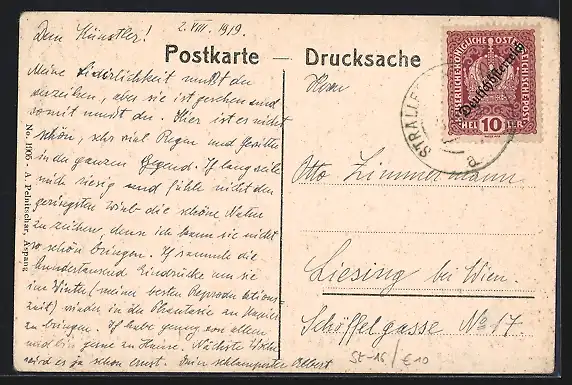 Dein Künstler! 2. VIII. 1919.
Postkarte — Drucksache
Meine Liederlichkeit mußt du
verzeihen, aber sie ist geschehen und
somit mußt du. Hier ist es nicht
schön, sehr viel Regen und Gewitter
in der ganzen Gegend. Ich langweile
mich riesig und fühle nicht den
geringsten Trieb die schöne Natur
zu zeichnen, denn ich kann sie nicht
so schön bringen. Ich sammle die
hunderttausend Eindrücke um sie
im Winter (meiner besten Reproduktions-
zeit) wieder in der Phantasie zu Papier
zu bringen. Ich habe genug von allem
und bin gerne zu Hause. Nächste Woche
wird es ja schon ernst. Dein schlampiger Albert
Herrn
Otto Zimmermann
Liesing bei Wien.
Schöffelgasse No 17
KAISERLICHE KÖNIGLICHE ÖSTERREICHISCHE POST
Deutschösterreich
HELLER 10 HELLER
STRALLE
No. 1006 - A. Pelnitschar, Aspang
St-16/€10